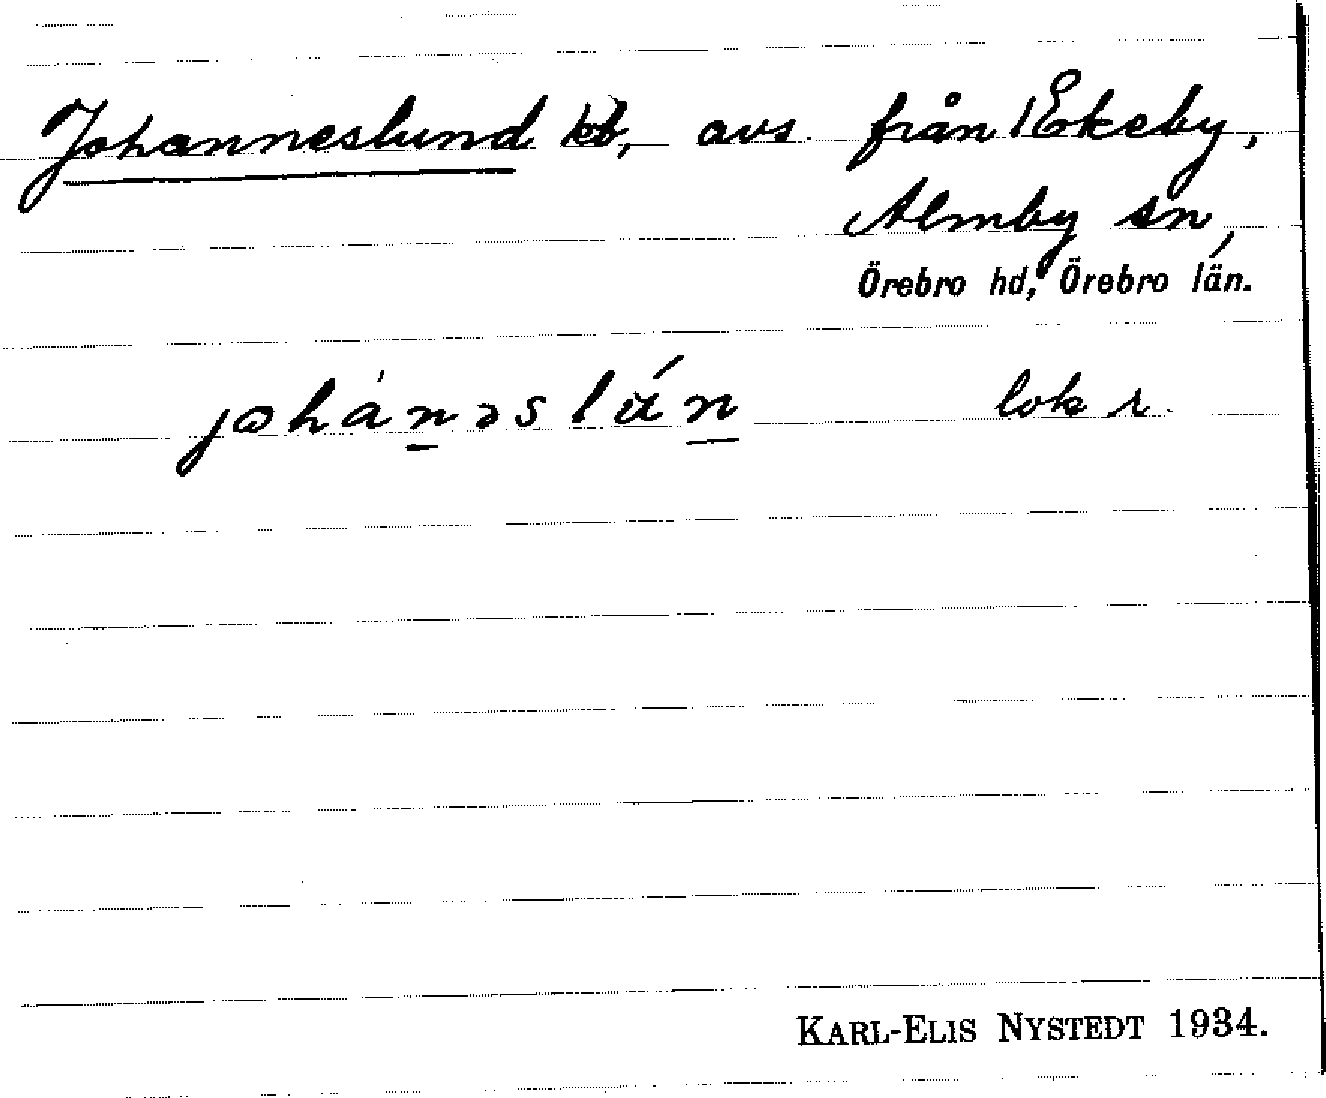 Johanneslund avs. från Ekeby,
Almby sn,
Örebro hd, Örebro län.
johánəslún lok r.
KARL-ELIS NYSTEDT 1934.